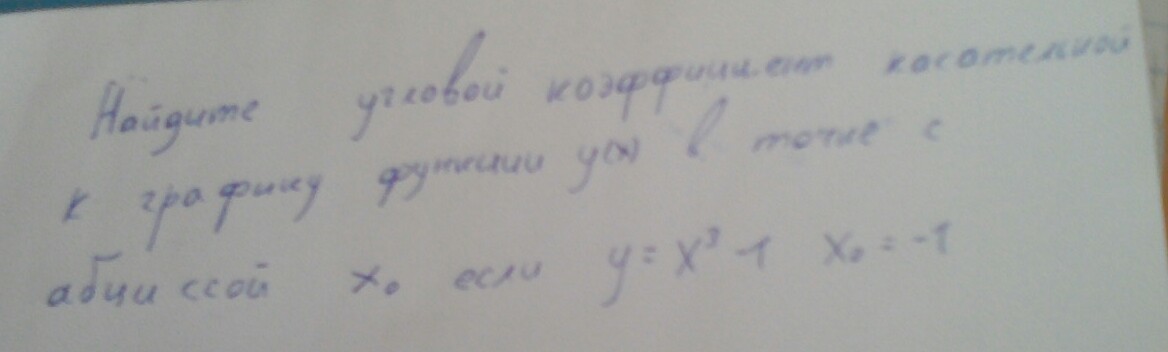 Найдите угловой коэффициент касательной
к графику функции y(x) в точке с
абциссой x₀ если y = x³ -1 x₀ = -1